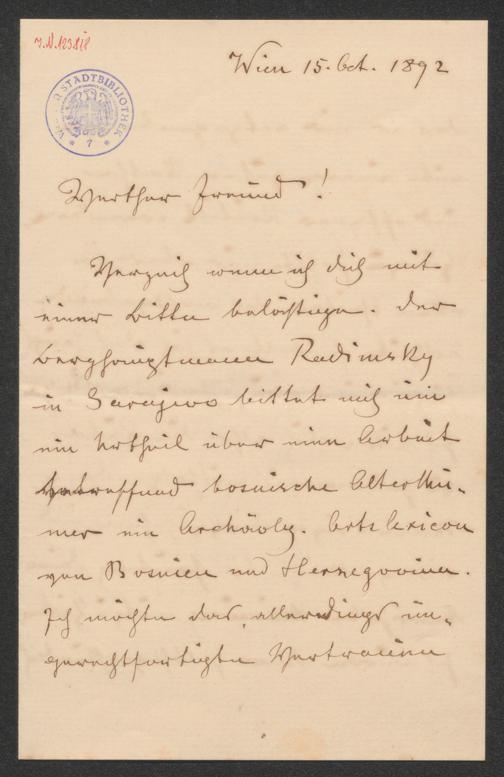 J.N.125818
WIENER STADTBIBLIOTHEK
7
Wien 15. Oct. 1892
Werther Freund!
Verzeih wenn ich dich mit
einer Bitte belästige. Der
Berghauptmann Radimsky
in Sarajewo bittet mich um
ein Urtheil über eine Arbeit
betreffend bosnische Alterthü-
mer ein Archäolog. Ortslexicon
von Bosnien und Herzegowina.
Ich möchte das, allerdings un-
gerechtfertigte Vertrauen